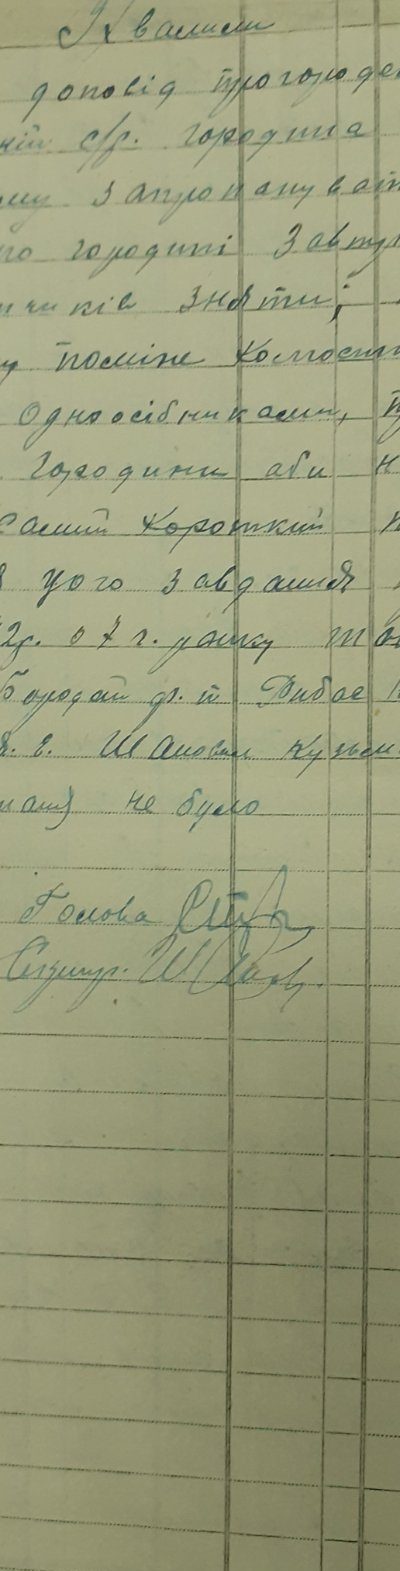 Ухвалили
доповід про городе
кій с/р. городина
му запропанувати
по городині завтр
чиків зняти;
у поміж колгоспн
одноосібниками, п
городини аби н
самий короткий
цого завдання
2р. о 7 г. ранку
Бородай ф. й Рибас
Шаповал Кузьм
ання не було
Голова
Секритар.